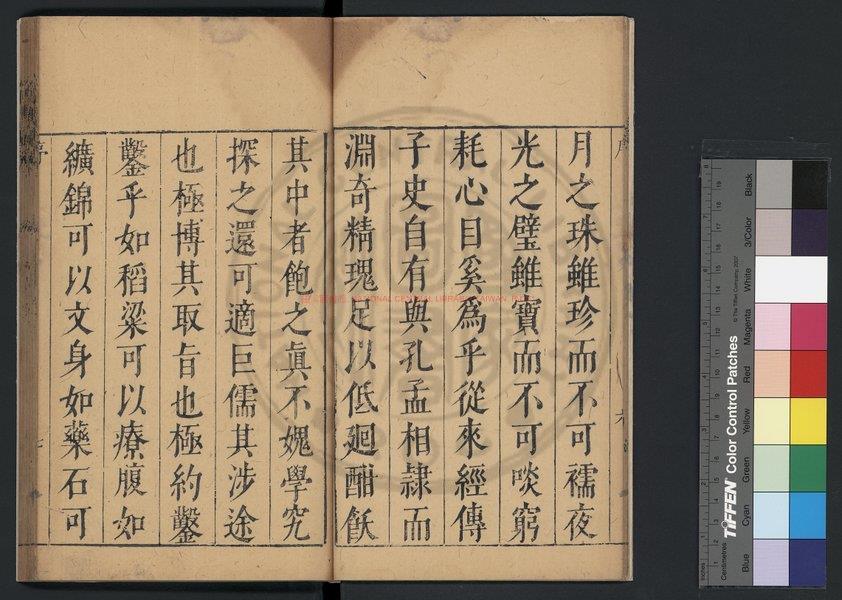 月之珠雖珍而不可襦夜
光之璧雖寶而不可啖窮
耗心目奚為乎從來經傳
子史自有與孔孟相隷而
淵奇精瑰足以低廻酣飫
其中者飽之眞不媿學究
探之還可適巨儒其涉途
也極博其取旨也極約鑿
鑿乎如稻粱可以療腹如
纊錦可以文身如藥石可
序
七
NATIONAL CENTRAL LIBRARY, TAIWAN
TIFFEN Color Control Patches
© The Tiffen Company, 2007
Centimetres
Inches
Blue
Cyan
Green
Yellow
Red
Magenta
White
3/Color
Black